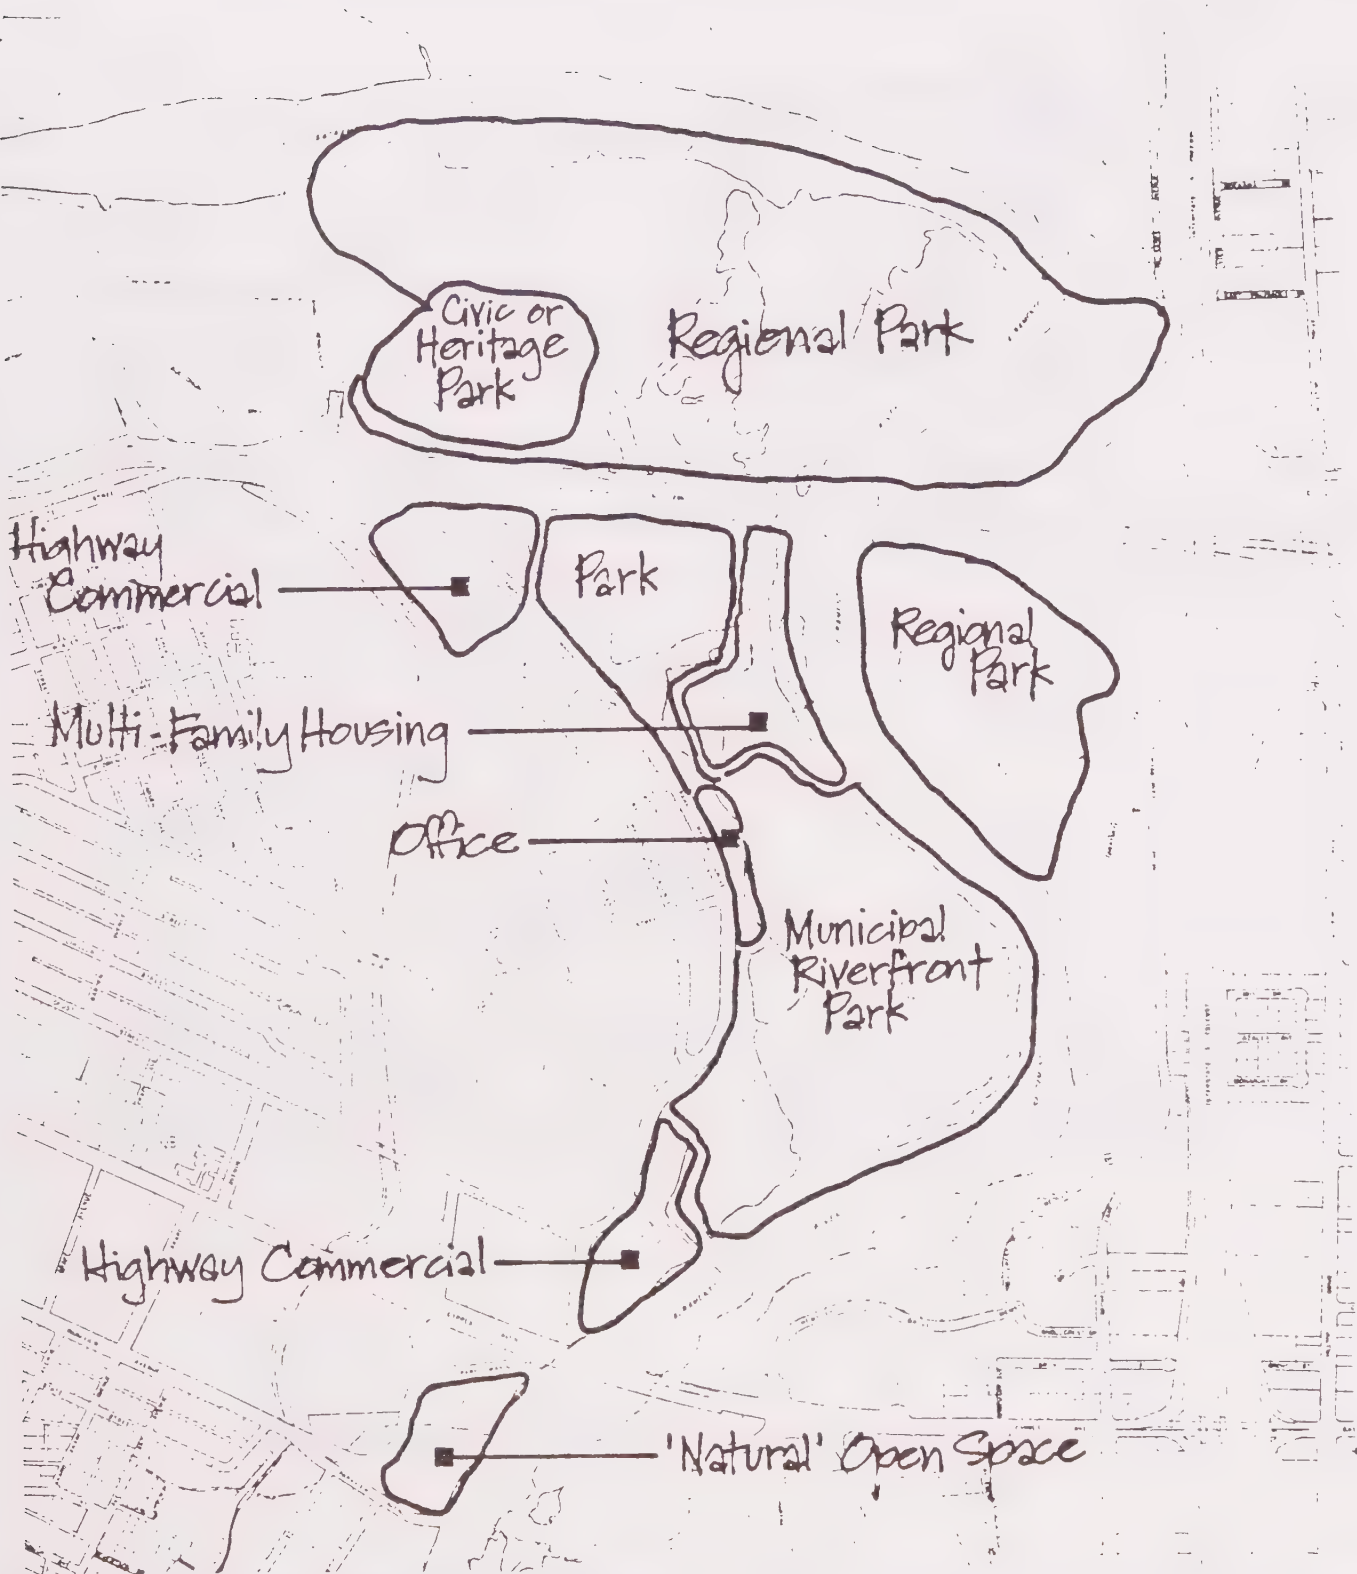 Civic or
Heritage
Park
Regional Park
Highway
Commercial
Park
Regional
Park
Multi-Family Housing
Office
Municipal
Riverfront
Park
Highway Commercial
'Natural' Open Space